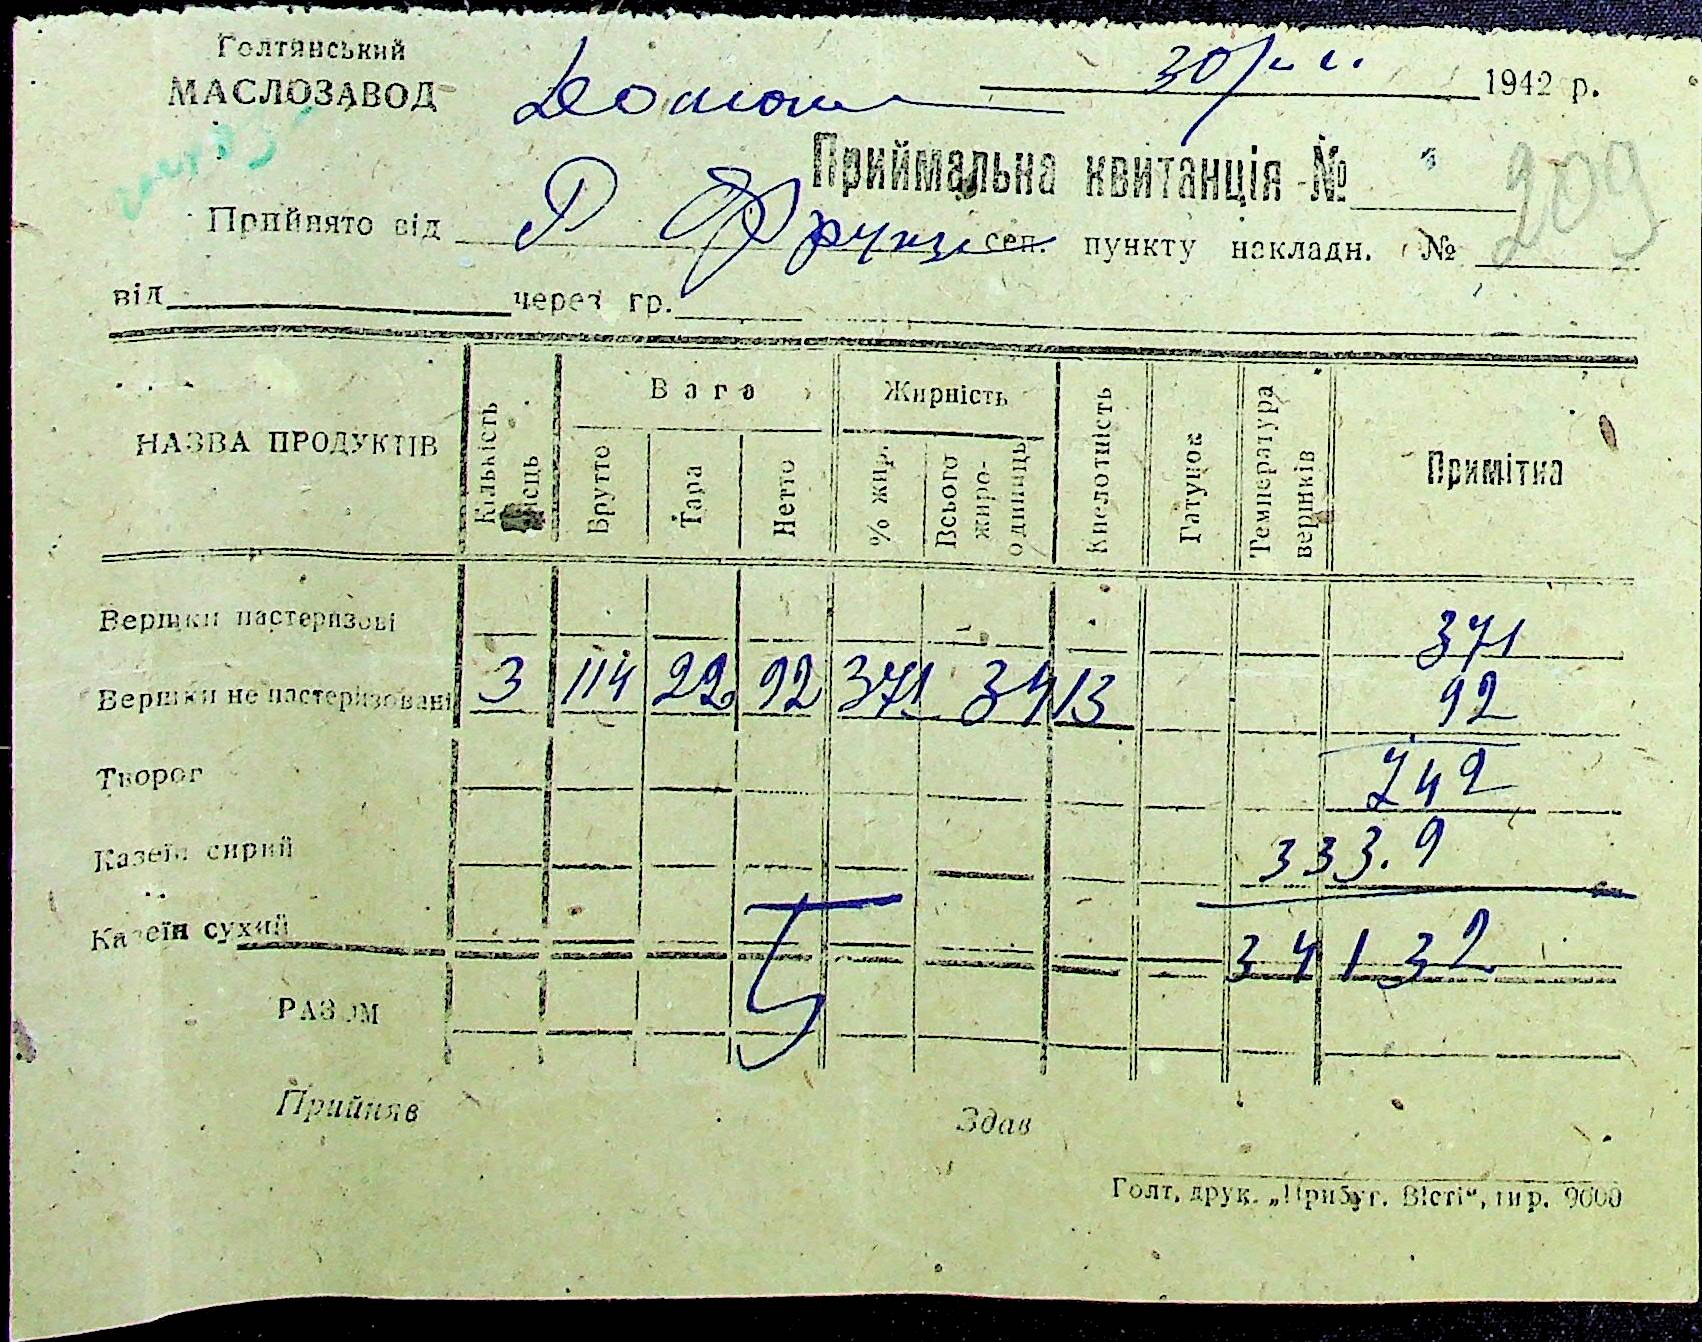 Голтянський
МАСЛОЗАВОД
30/ 1942 р.
Приймальна квитанція №
209
Прийнято від Р Фрунзе сеп. пункту накладн. №
від через гр.
НАЗВА ПРОДУКТІВ
Кількість місць
Вага
Бруто
Тара
Нетто
Жирність
% жир.
Всього жиро-одиниць
Кислотність
Гатунок
Температура вершків
Примітка
Вершки пастеризові 371
Вершки не пастеризовані 3 114 22 92 371 3413 92
Творог 742
Казеїн сирий 333.9
Казеїн сухий 34132
РАЗОМ
Прийняв Здав
Голт. друк. „Прибуг. Вісті“, тир. 9000